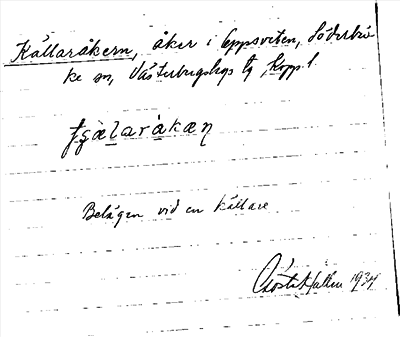 Källaråkern, åker i Eppsveten, Söderbär
ke sn, Västerbergslags tg, Kopp. l.
Belägen vid en källare
Gösta Hallm 1934